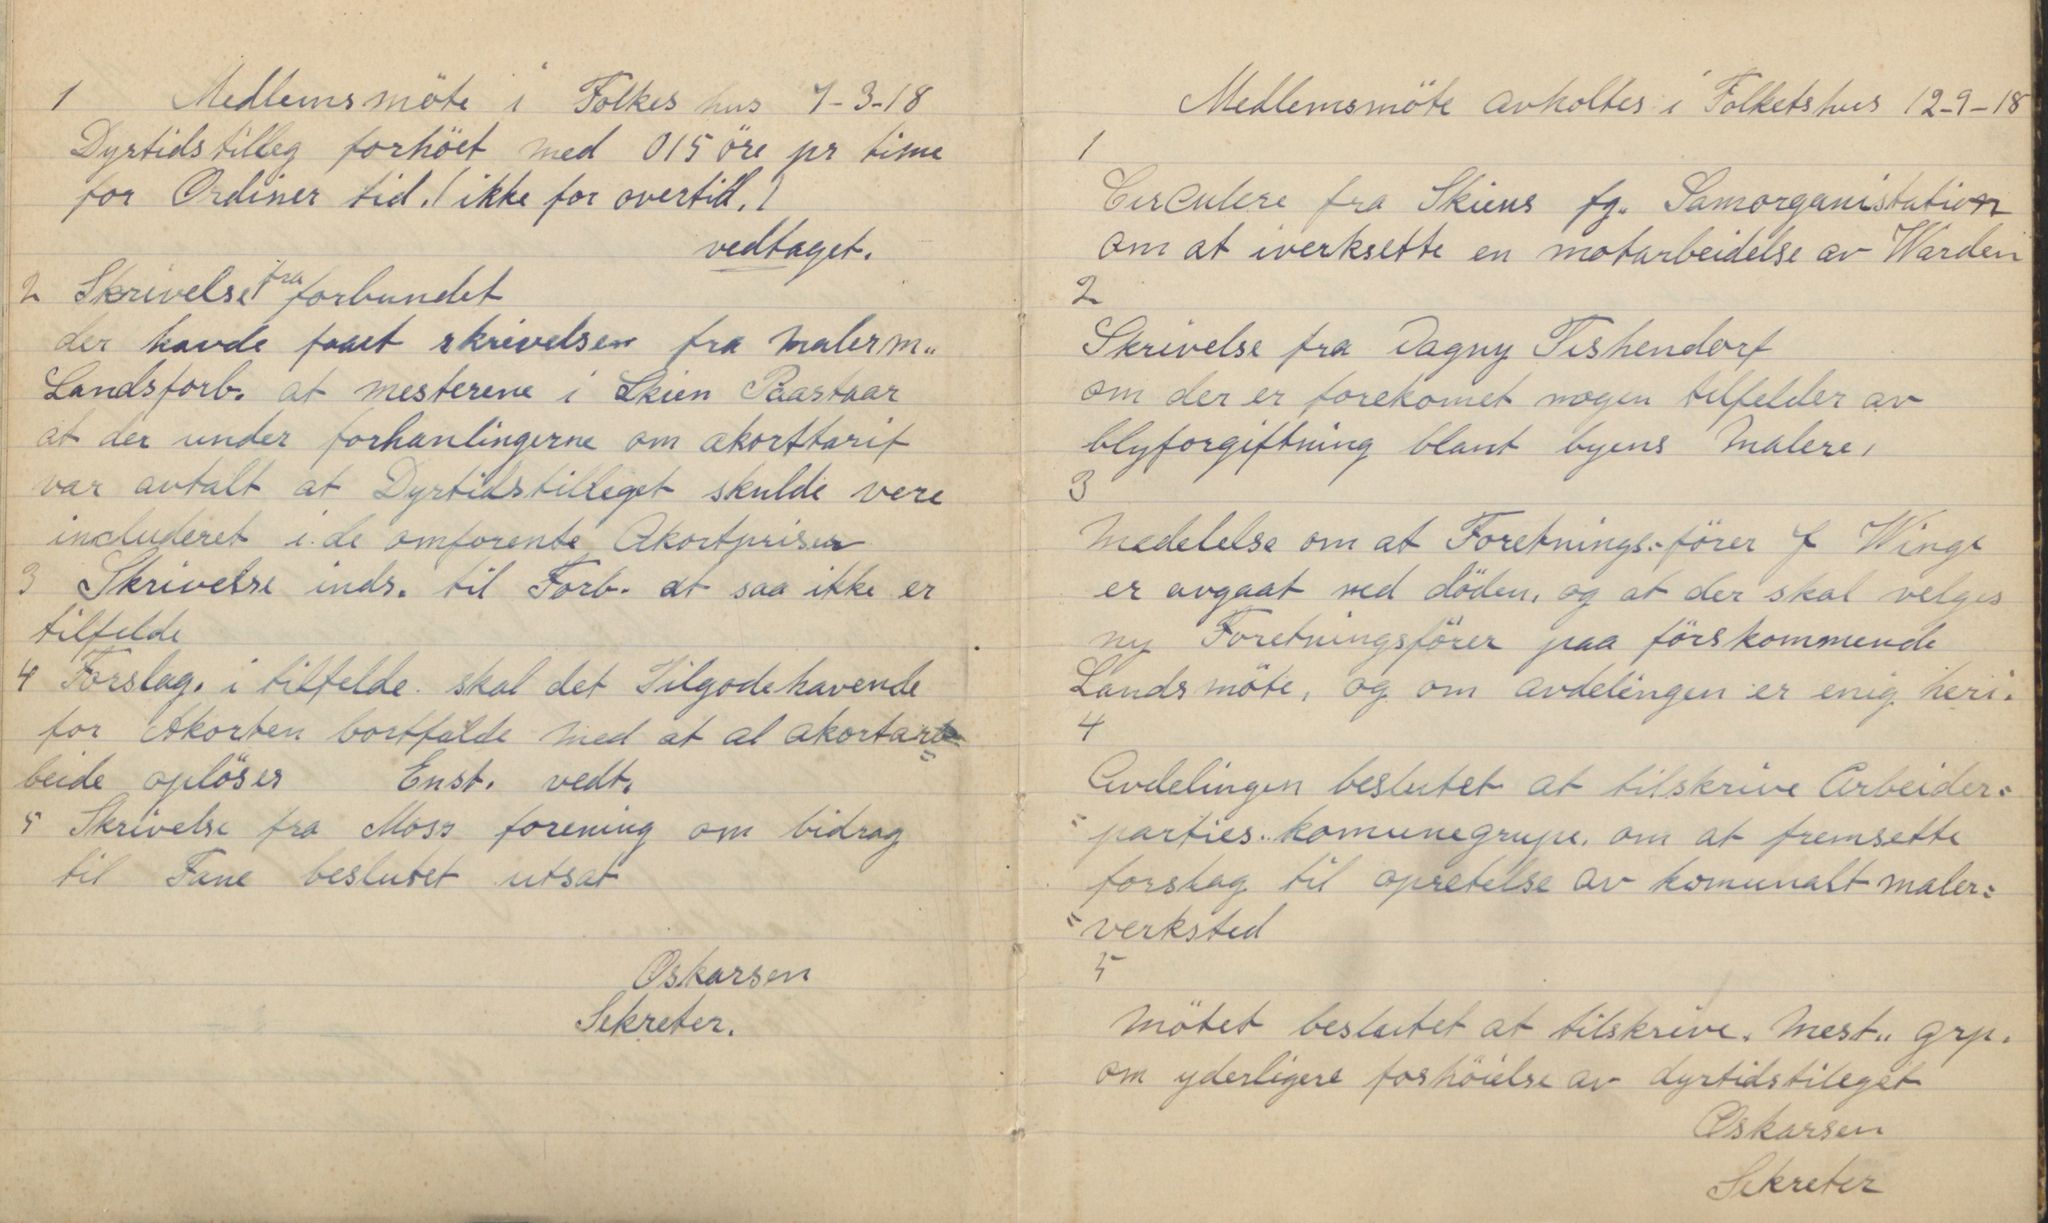 1 Medlemsmöte i Folkes hus 7-3-18
Dyrtidstilleg forhöet med 015 öre pr time
for Ordiner tid. (ikke for overtid.)
vedtaget.
2 Skrivelse fra forbundet
der havde faaet skrivelser fra malerm„
Landsforb. at mesterene i Skien Paastaar
at der under forhanlingerne om akorttarif
var avtalt at Dyrtidstilleget skulde vere
includeret i de omforente Akortpriser
3 Skrivelse inds. til Forb. at saa ikke er
tilfelde
4 Forslag. i tilfelde skal det Tilgodehavende
for Akorten bortfalde med at al akortar=
beide oplöses Enst. vedt.
5 Skrivelse fra Moss forening om bidrag
til Fane beslutet utsat
Oskarsen
Sekreter.
Medlemsmöte avholtes i Folketshus 12-9-18
1
Circulere fra Skiens fg. Samorganistation
om at iverksette en motarbeidelse av Varden
2
Skrivelse fra Dagny Tishendorf
om der er forekomet nogen tilfelder av
blyforgiftning blant byens Malere,
3
Medelelse om at Foretnings=förer J Winge
er avgaat ved döden, og at der skal velges
ny Foretningsförer paa förskommende
Landsmöte, og om avdelingen er enig heri.
4
Avdelingen beslutet at tilskrive Arbeider=
"parties..komunegrupe. om at fremsette
forslag til opretelse av komunalt maler=
"verksted
5
Mötet beslutet at tilskrive. Mest„ grp.
om yderligere forhöielse av dyrtidstileget
Oskarsen
Sekreter